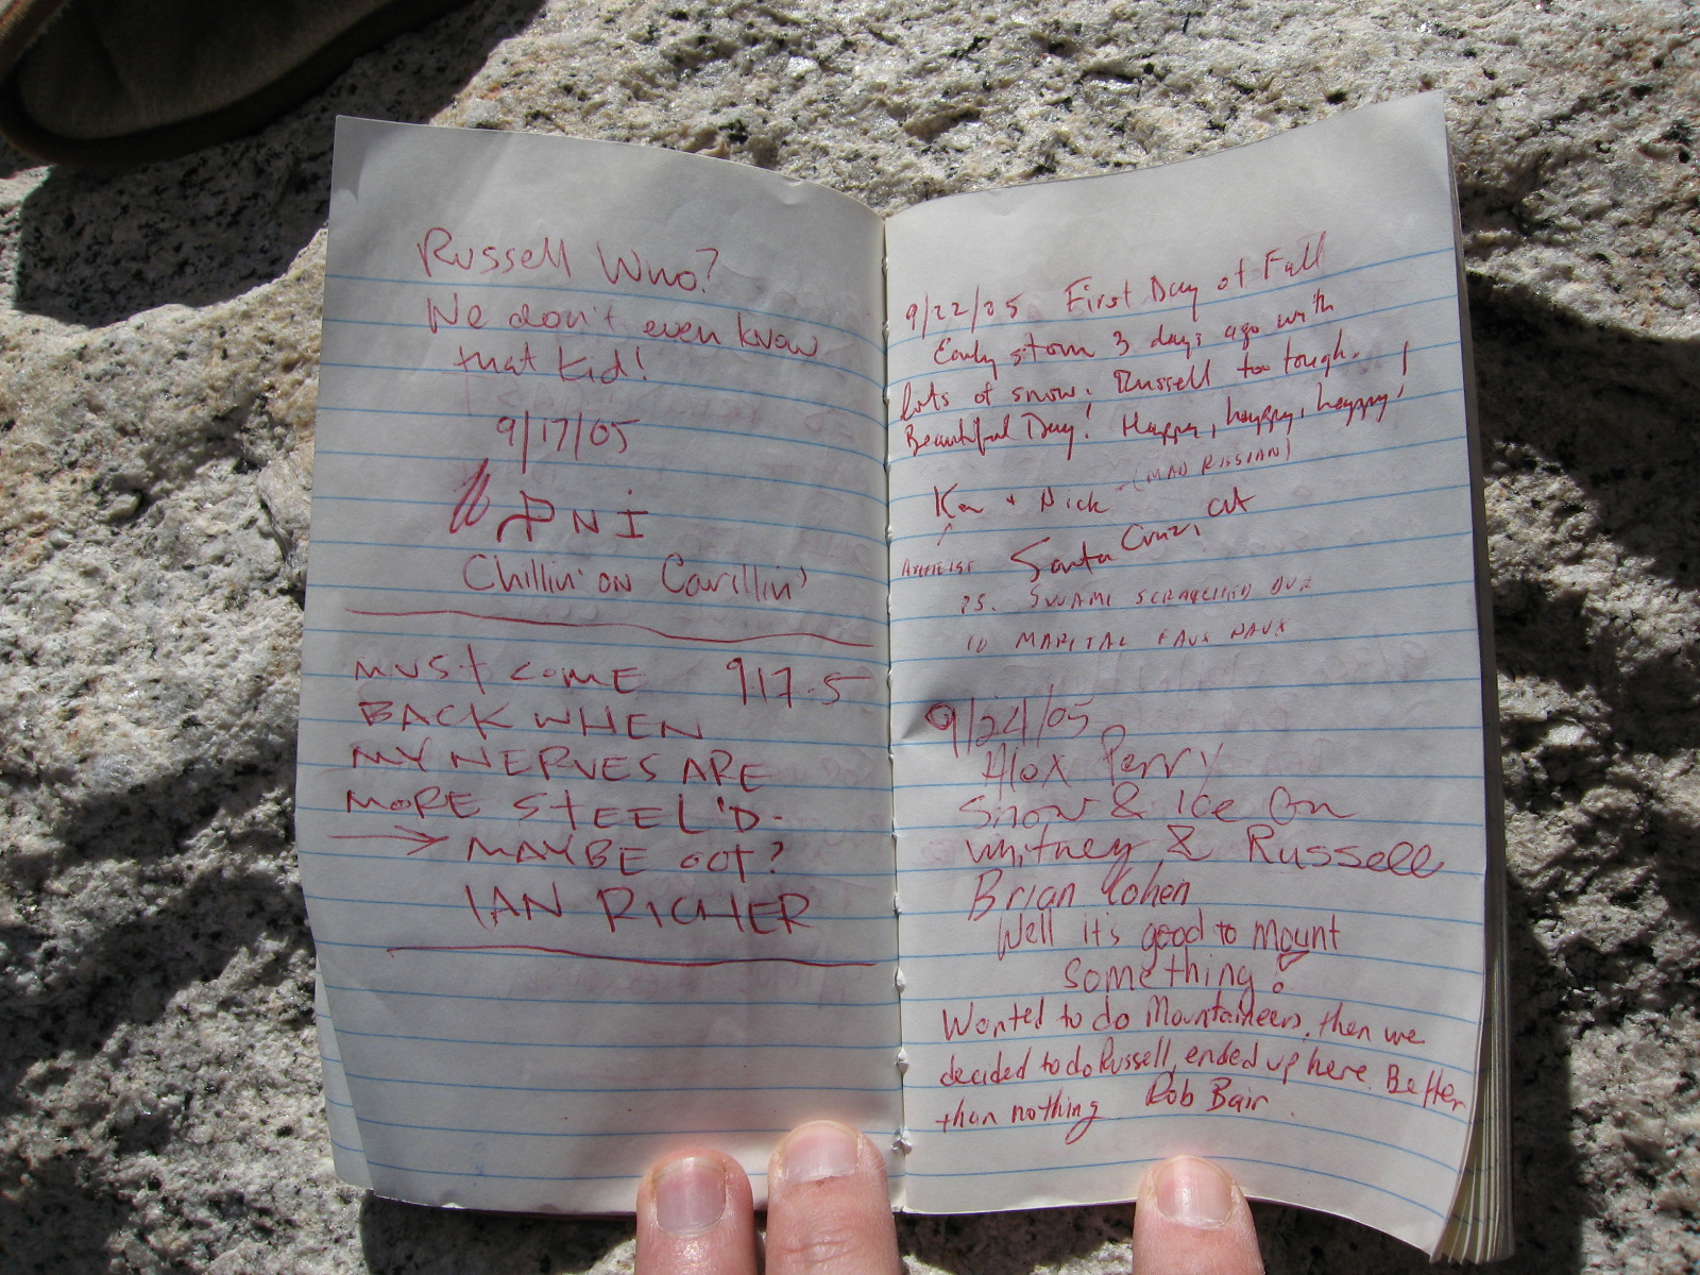 Russell Who?
We don't even know
that kid!
9/17/05
Chillin' on Carillin'
MUST COME 917.5
BACK WHEN
MY NERVES ARE
MORE STEEL'D.
MAYBE OCT?
IAN RICHER
9/22/05 First Day of Fall
Early storm 3 days ago with
lots of snow. Russell too tough.
Beautiful Day! Happy, happy, happy!
(MAD RUSSIAN)
Ken + Nick
Santa Cruz, CA
PS. SWAMI SCRATCHED DUE
TO MARITAL FAUX PAUX
9/24/05
Alex Perry
Snow & Ice on
Whitney & Russell
Brian Cohen
Well it's good to mount
something!
Wanted to do Mountaineers, then we
decided to do Russell, ended up here. Better
than nothing Rob Bair